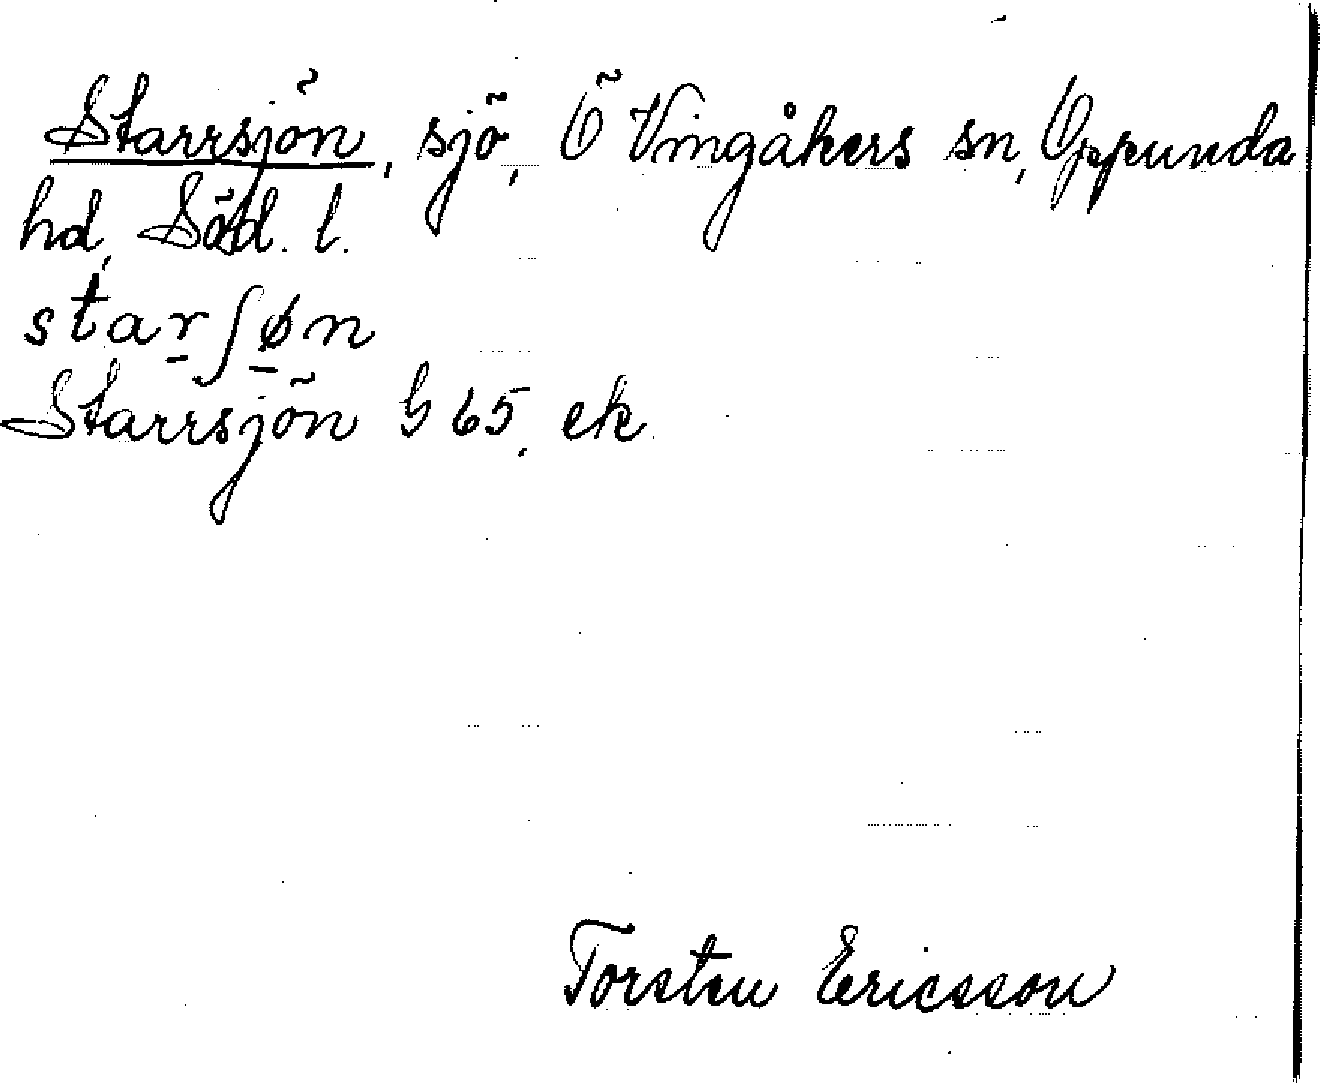 Starrsjön, sjö, Ö Vingåkers sn, Oppunda
hd, Söd. l.
starʃøn
Starrsjön G 65, ek.
Torsten Ericsson